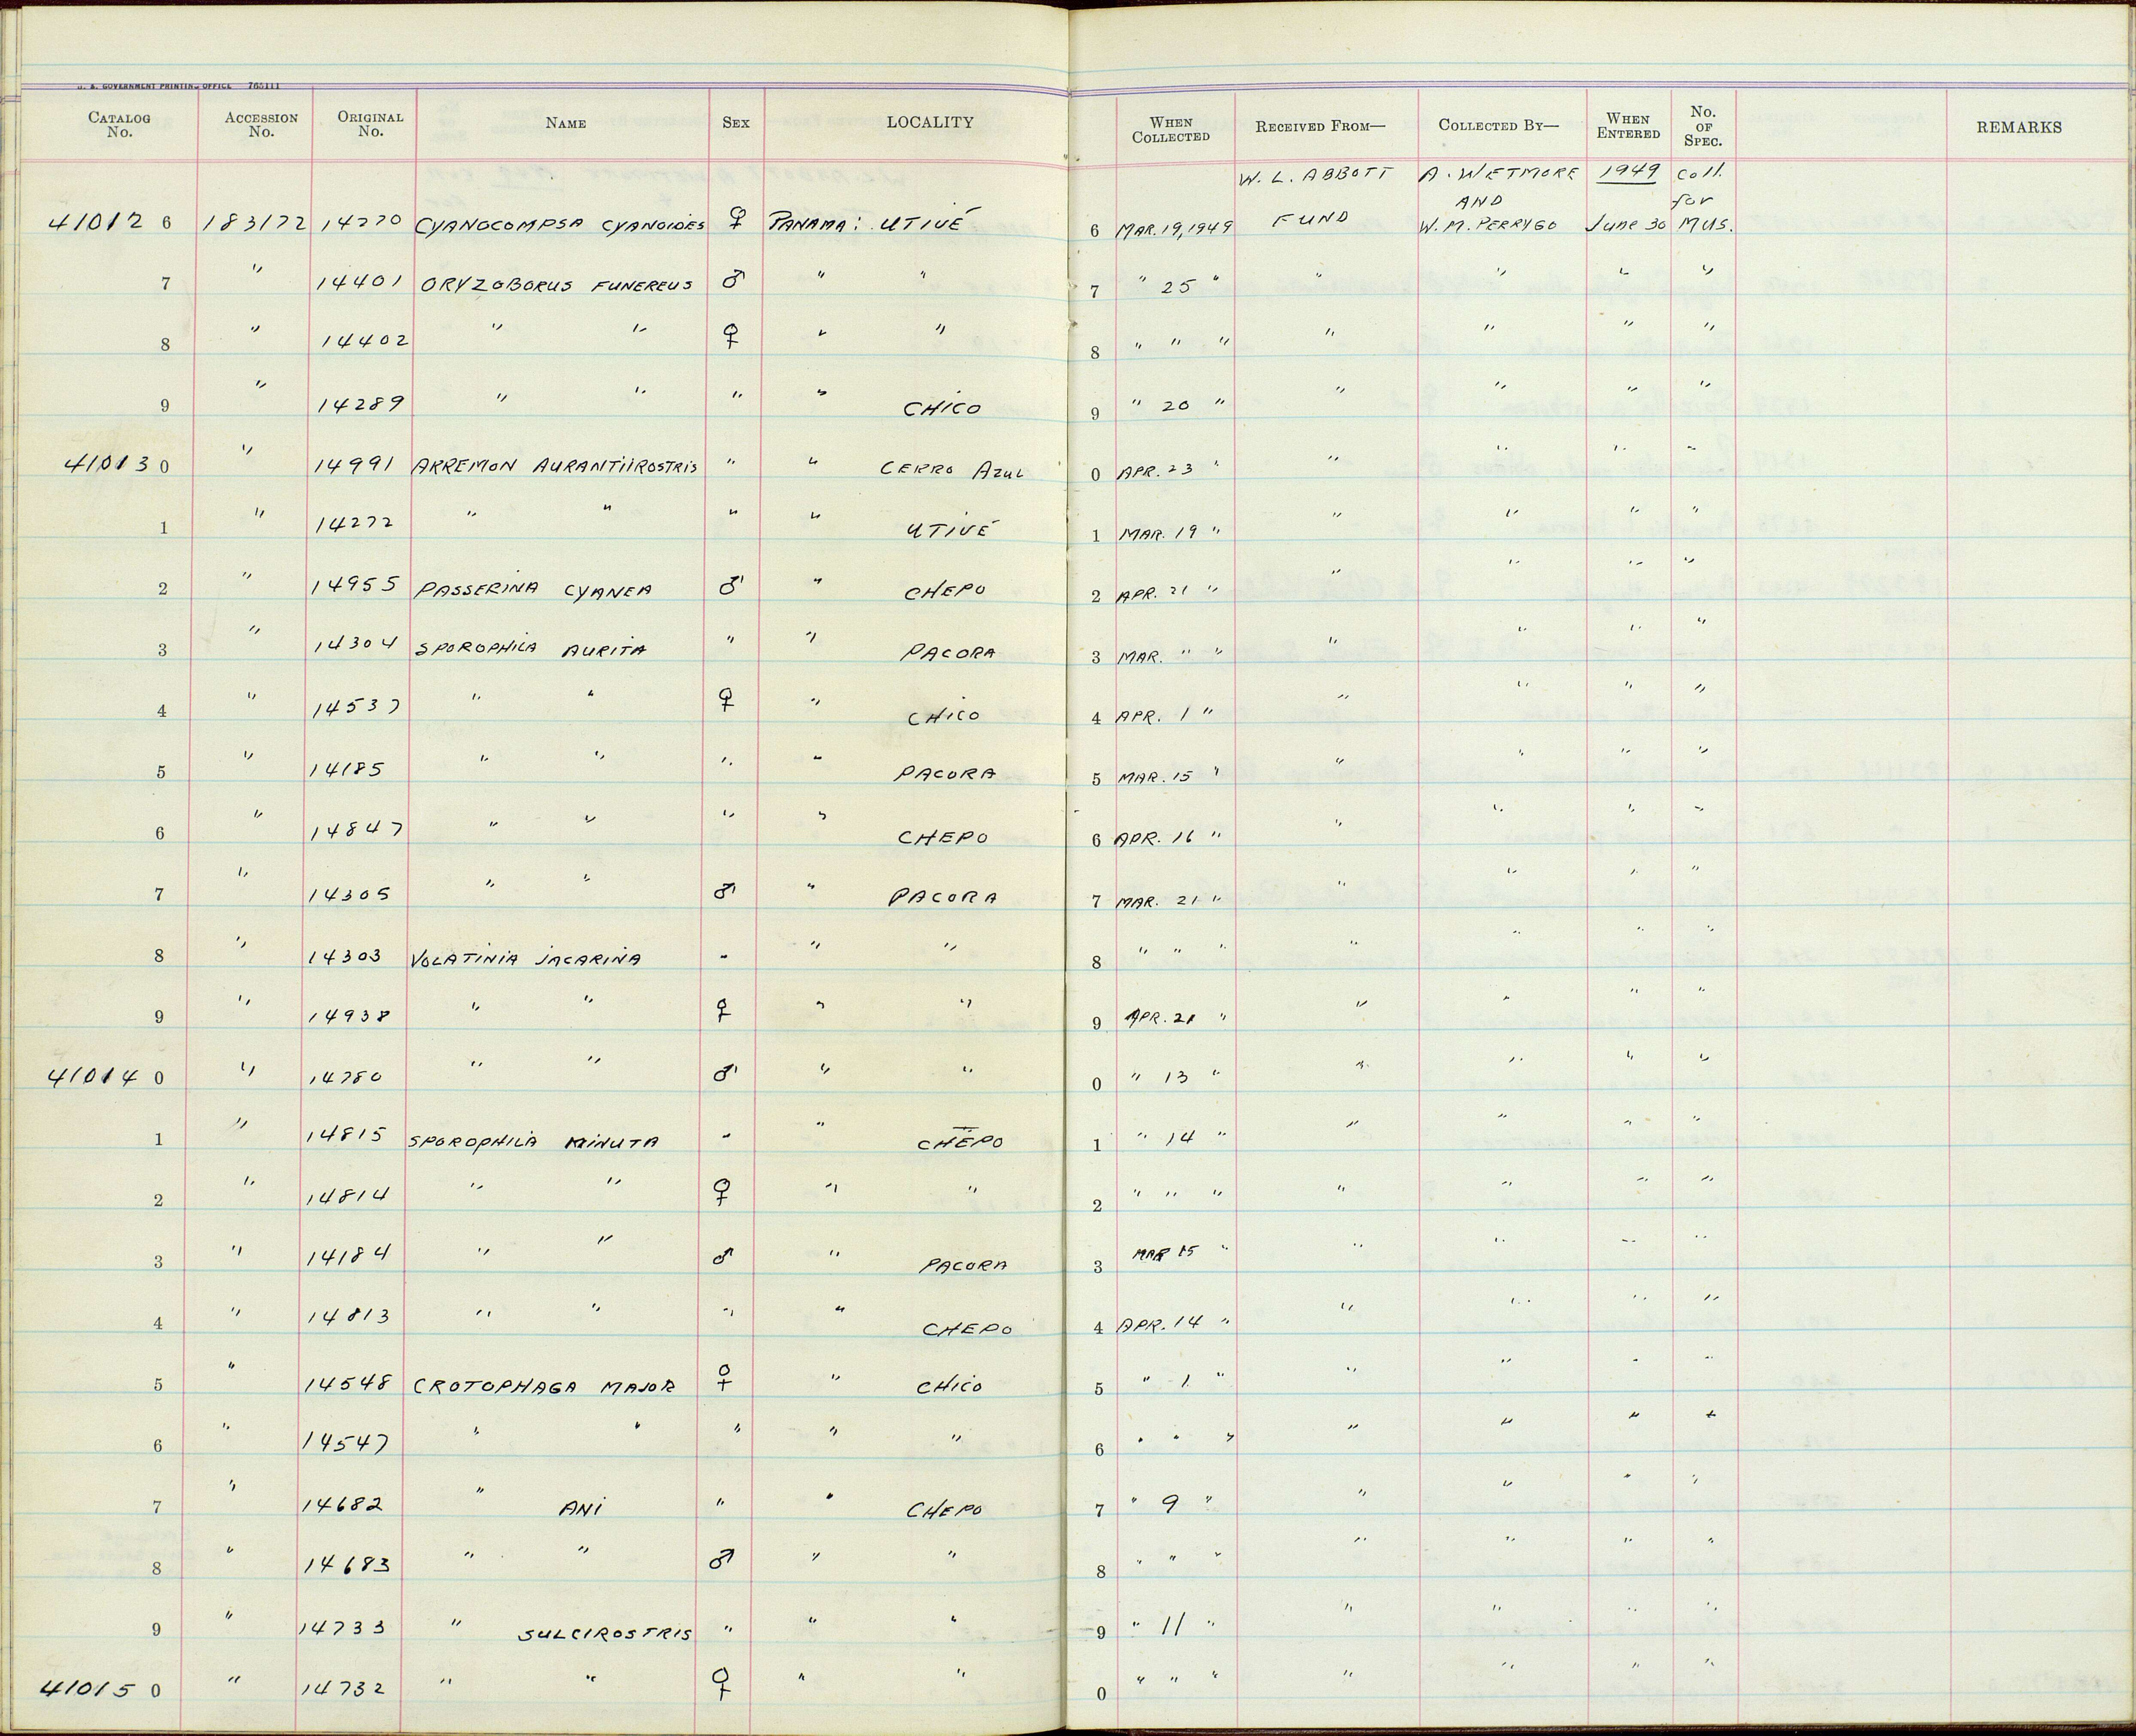 U. S. GOVERNMENT PRINTING OFFICE 765111
CATALOG No. ACCESSION No. ORIGINAL No. NAME SEX LOCALITY WHEN COLLECTED RECEIVED FROM— COLLECTED BY— WHEN ENTERED No. OF SPEC. REMARKS
W. L. ABBOTT A. WETMORE 1949 Coll.
AND for
41012 6 183172 14270 CYANOCOMPSA CYANOIDES ♀ PANAMA: UTIVÉ 6 MAR. 19, 1949 FUND W. M. PERRYGO June 30 MUS.
7 " 14401 ORYZOBORUS FUNEREUS ♂ " " 7 " 25 " " " " "
8 " 14402 " " ♀ " " 8 " " " " " " "
9 " 14289 " " " " CHICO 9 " 20 " " " " "
41013 0 " 14991 ARREMON AURANTIIROSTRIS " " CERRO AZUL 0 APR. 23 " " " " "
1 " 14272 " " " " UTIVÉ 1 MAR. 19 " " " " "
2 " 14955 PASSERINA CYANEA ♂ " CHEPO 2 APR. 21 " " " " "
3 " 14304 SPOROPHILA AURITA " " PACORA 3 MAR. " " " " " "
4 " 14537 " " ♀ " CHICO 4 APR. 1 " " " " "
5 " 14185 " " " " PACORA 5 MAR. 15 " " " " "
6 " 14847 " " " " CHEPO 6 APR. 16 " " " " "
7 " 14305 " " ♂ " PACORA 7 MAR. 21 " " " " "
8 " 14303 VOLATINIA JACARINA " " " 8 " " " " " " "
9 " 14938 " " ♀ " " 9 APR. 21 " " " " "
41014 0 " 14780 " " ♂ " " 0 " 13 " " " " "
1 " 14815 SPOROPHILA MINUTA " " CHEPO 1 " 14 " " " " "
2 " 14814 " " ♀ " " 2 " " " " " " "
3 " 14184 " " ♂ " PACORA 3 MAR 15 " " " " "
4 " 14813 " " " " CHEPO 4 APR. 14 " " " " "
5 " 14548 CROTOPHAGA MAJOR ♀ " CHICO 5 " 1 " " " " "
6 " 14547 " " " " " 6 " " " " " " "
7 " 14682 " ANI " " CHEPO 7 " 9 " " " " "
8 " 14683 " " ♂ " " 8 " " " " " " "
9 " 14733 " SULCIROSTRIS " " " 9 " 11 " " " " "
41015 0 " 14732 " " ♀ " " 0 " " " " " " "